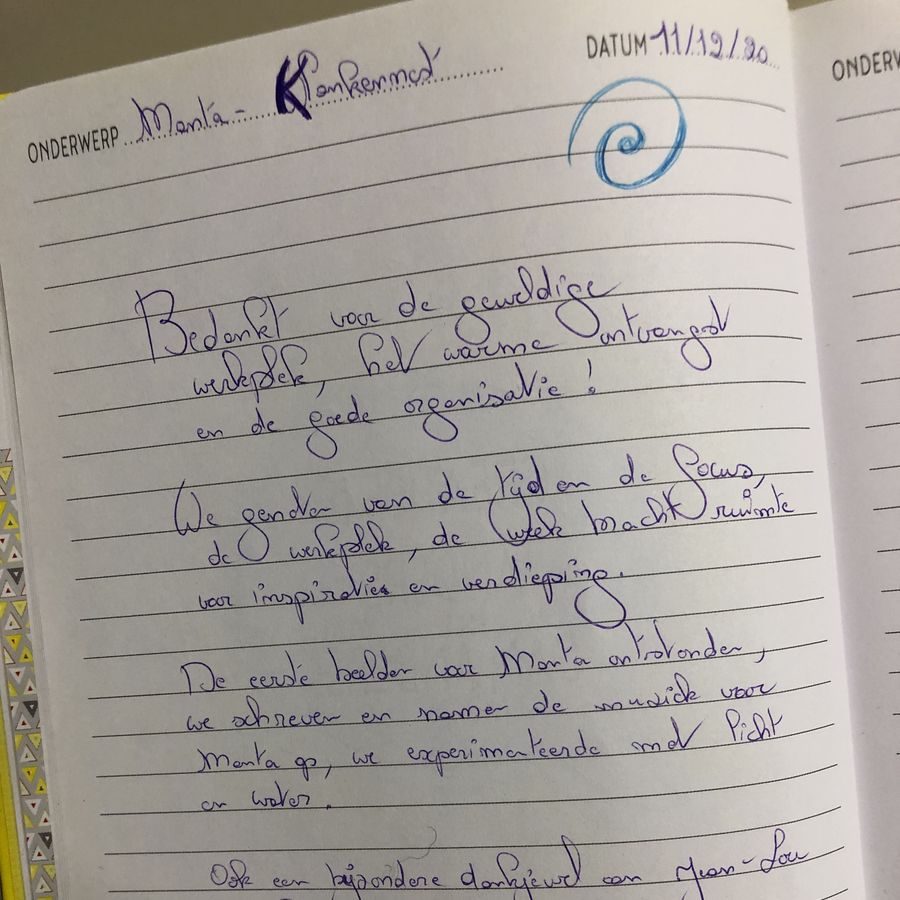 ONDERWERP Manta - Klankennest
DATUM 11/12/20
ONDERW
Bedankt voor de geweldige
werkplek, het warme ontvangst
en de goede organisatie!
We genoten van de tijd en de focus,
de werkplek, de week bracht ruimte
voor inspiratie en verdieping.
De eerste beelden voor Manta ontstonden,
we schreven en namen de muziek voor
Manta op, we experimenteerde met licht
en water.
Ook een bijzondere dankjewel aan Jean-Lou